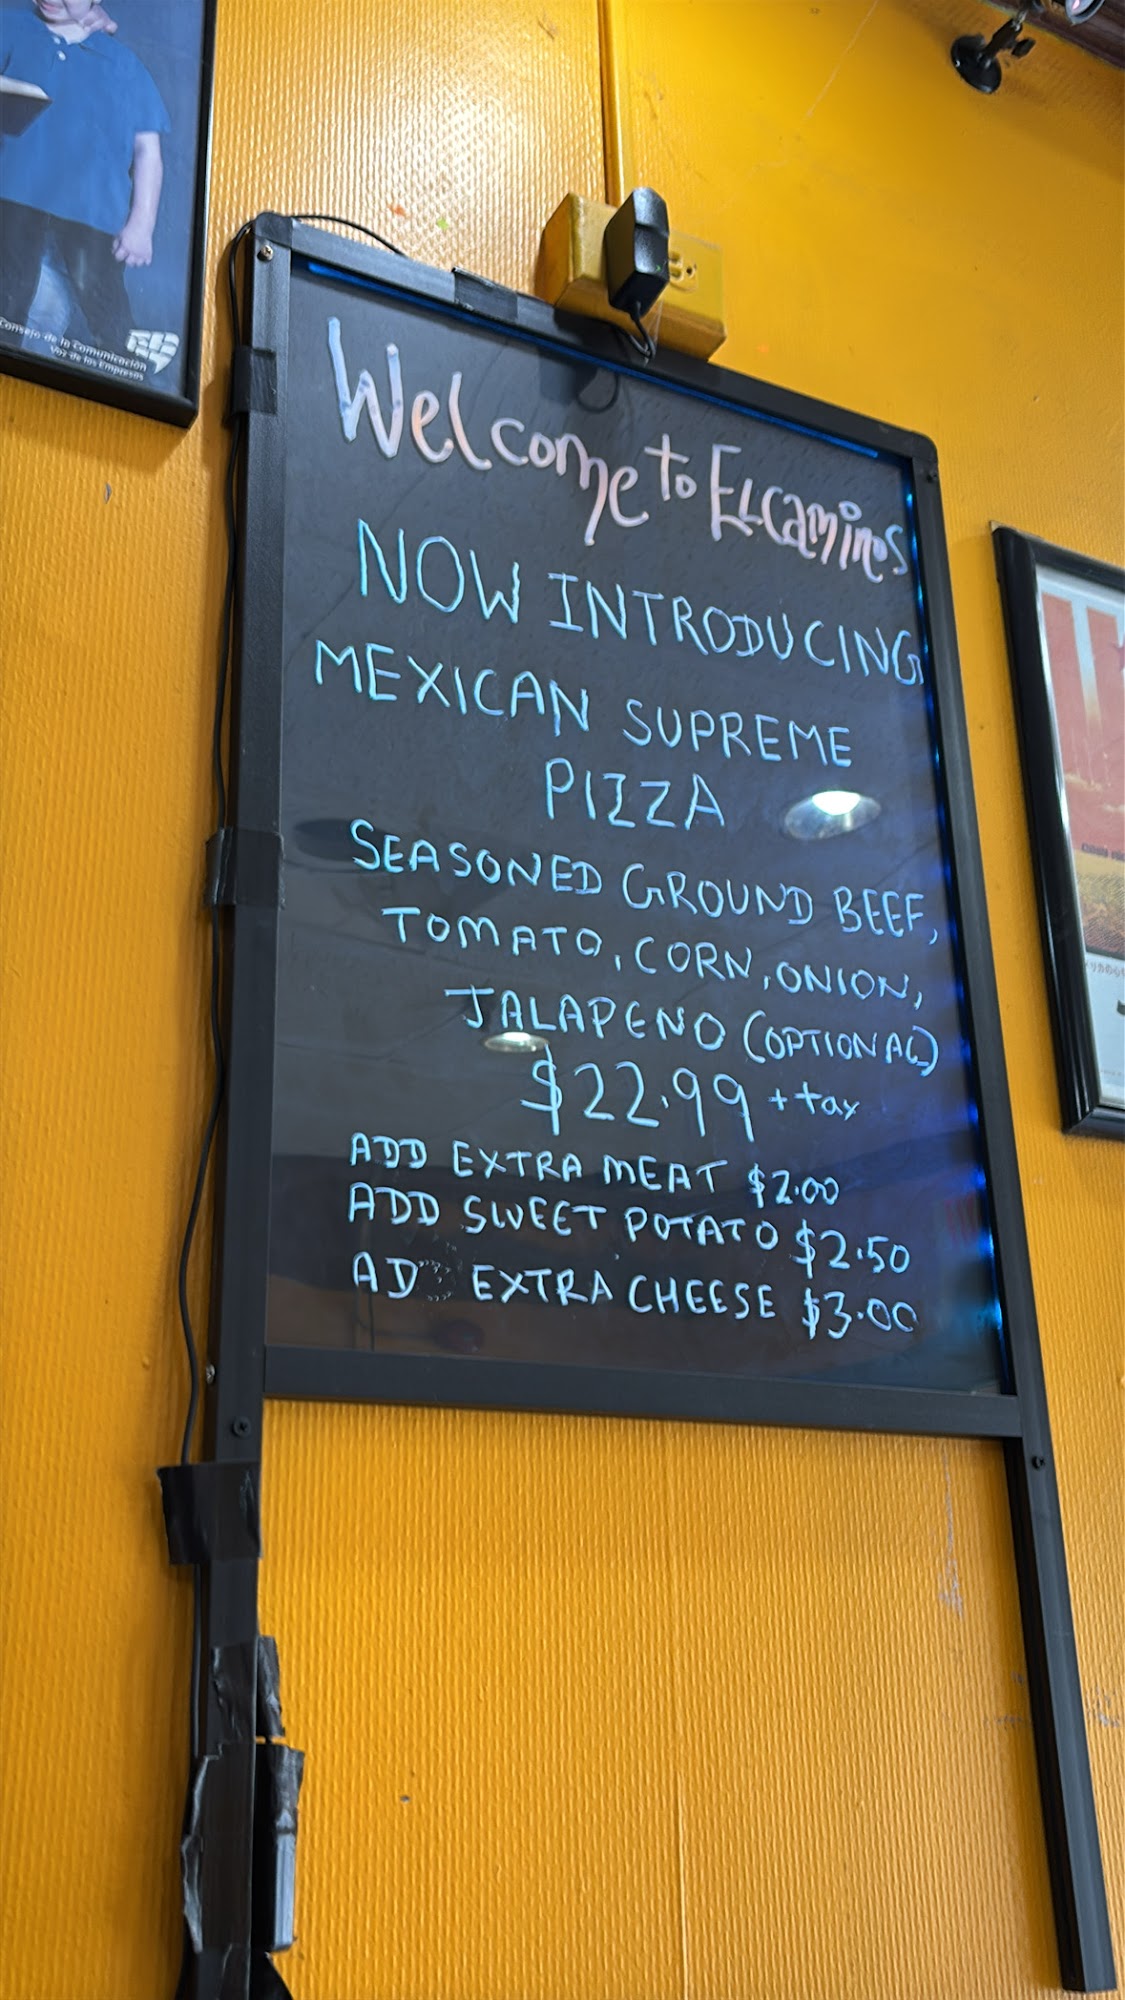 Consejo de la Comunicación
Voz de las Empresas
Welcome to ELCaminos
NOW INTRODUCING
MEXICAN SUPREME
PIZZA
SEASONED GROUND BEEF,
TOMATO, CORN, ONION,
JALAPENO (OPTIONAL)
$22.99 + tax
ADD EXTRA MEAT $2.00
ADD SWEET POTATO $2.50
AD EXTRA CHEESE $3.00